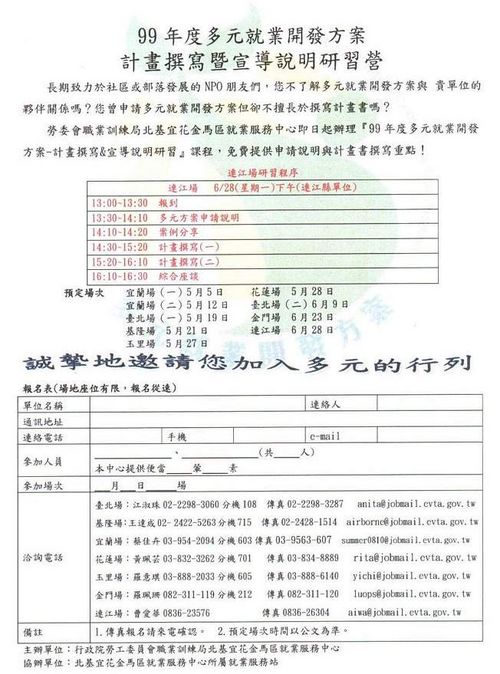 99年度多元就業開發方案
計畫撰寫暨宣導說明研習營
長期致力於社區或部落發展的NPO朋友們，您不了解多元就業開發方案與 貴單位的
夥伴關係嗎？您曾申請多元就業開發方案但卻不擅長於撰寫計畫書嗎？
勞委會職業訓練局北基宜花金馬區就業服務中心即日起辦理『99年度多元就業開發
方案-計畫撰寫&宣導說明研習』課程，免費提供申請說明與計畫書撰寫重點！
連江場研習程序
連江場 6/28(星期一)下午(連江縣單位)
13:00~13:30 報到
13:30~14:10 多元方案申請說明
14:10~14:20 案例分享
14:30~15:20 計畫撰寫(一)
15:20~16:10 計畫撰寫(二)
16:10~16:30 綜合座談
預定場次 宜蘭場(一)5月5日 花蓮場 5月28日
宜蘭場(二)5月12日 臺北場(二)6月9日
臺北場(一)5月19日 金門場 6月23日
基隆場 5月21日 連江場 6月28日
玉里場 5月27日
誠摯地邀請您加入多元的行列
報名表(場地座位有限，報名從速)
單位名稱 連絡人
通訊地址
連絡電話 手機 e-mail
參加人員 、 (共 人)
本中心提供便當 葷 素
參加場次 月 日 場
洽詢電話
臺北場：江淑珠 02-2298-3060 分機 108 傳真 02-2298-3287 anita@jobmail.cvta.gov.tw
基隆場：王達成 02-2422-5263 分機 715 傳真 02-2428-1514 airborne@jobmail.cvta.gov.tw
宜蘭場：蔡佳卉 03-954-2094 分機 603 傳真 03-9563-607 summer0810@jobmail.cvta.gov.tw
花蓮場：黃珮芸 03-832-3262 分機 701 傳真 03-834-8889 rita@jobmail.cvta.gov.tw
玉里場：羅意琪 03-888-2033 分機 605 傳真 03-888-6140 yichi@jobmail.cvta.gov.tw
金門場：羅珮珊 082-311-119 分機 212 傳真 082-311-120 luops@jobmail.cvta.gov.tw
連江場：曹愛華 0836-23576 傳真 0836-26304 aiwa@jobmail.cvta.gov.tw
備註 1.傳真報名請來電確認。 2.預定場次時間以公文為準。
主辦單位：行政院勞工委員會職業訓練局北基宜花金馬區就業服務中心
協辦單位：北基宜花金馬區就業服務中心所屬就業服務站